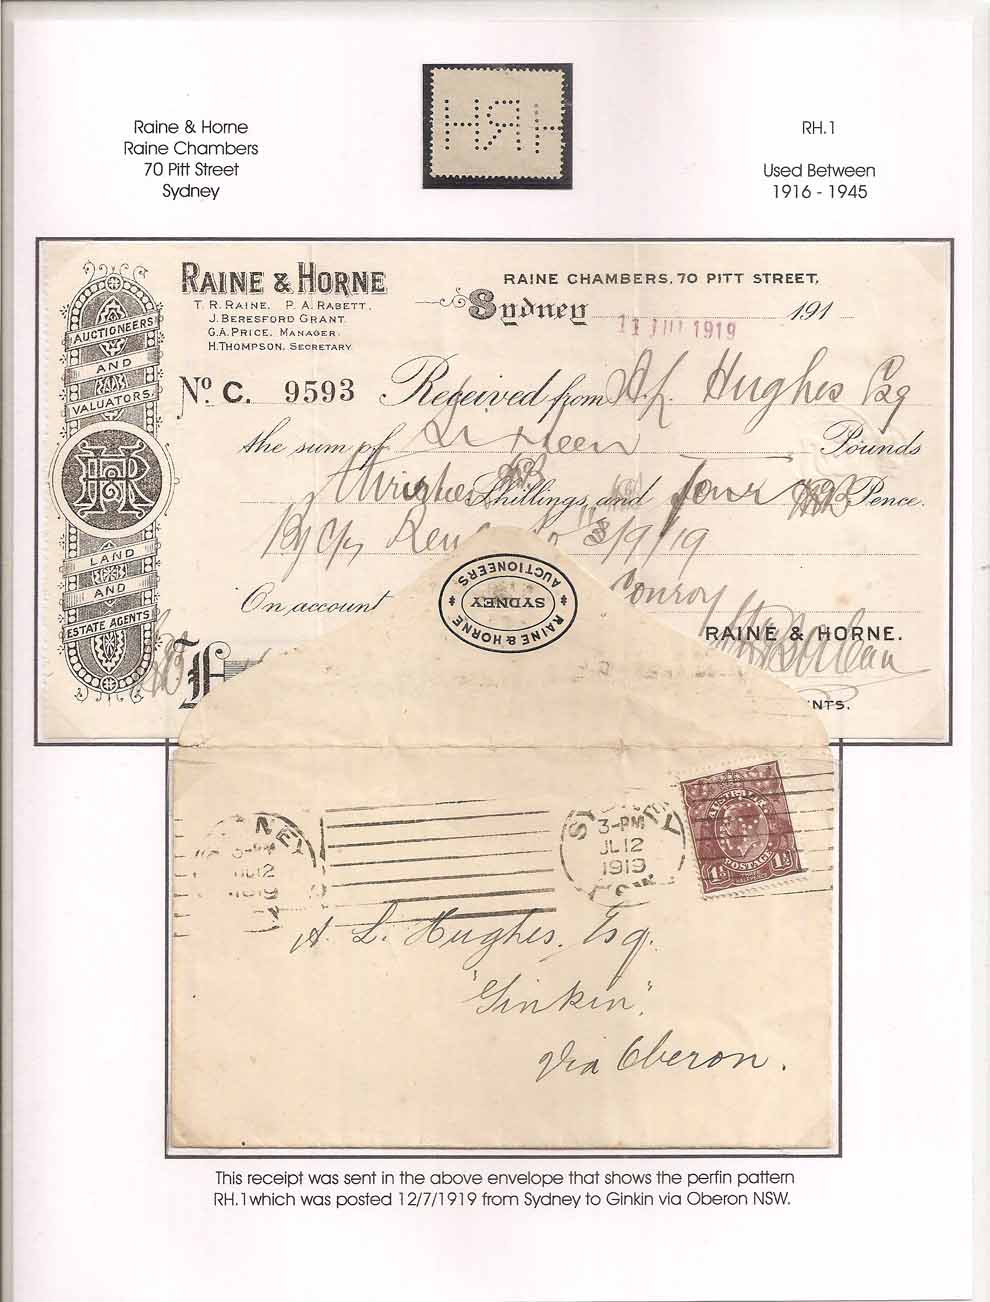 Raine & Horne
Raine Chambers
70 Pitt Street
Sydney
RH.1
Used Between
1916 - 1945
AUCTIONEERS
AND
VALUATORS
LAND
AND
ESTATE AGENTS
RAINE & HORNE
T. R. RAINE. P. A. RABETT.
J. BERESFORD GRANT.
G.A. PRICE, MANAGER.
H. THOMPSON, SECRETARY.
RAINE CHAMBERS, 70 PITT STREET,
Sydney 191
1919
No. C. 9593 Received from A. L. Hughes Esq
the sum of Sixteen Pounds
Shillings and four Pence.
By Chq 3/9/19
On account Conroy
RAINE & HORNE.
NTS.
RAINE & HORNE
AUCTIONEERS
SYDNEY
3-PM
JL 12
1919
SYDNEY
3-PM
JL 12
1919
AUSTRALIA
1½D 1½D
POSTAGE
A. L. Hughes. Esq.
"Ginkin",
Via Oberon.
This receipt was sent in the above envelope that shows the perfin pattern
RH.1which was posted 12/7/1919 from Sydney to Ginkin via Oberon NSW.